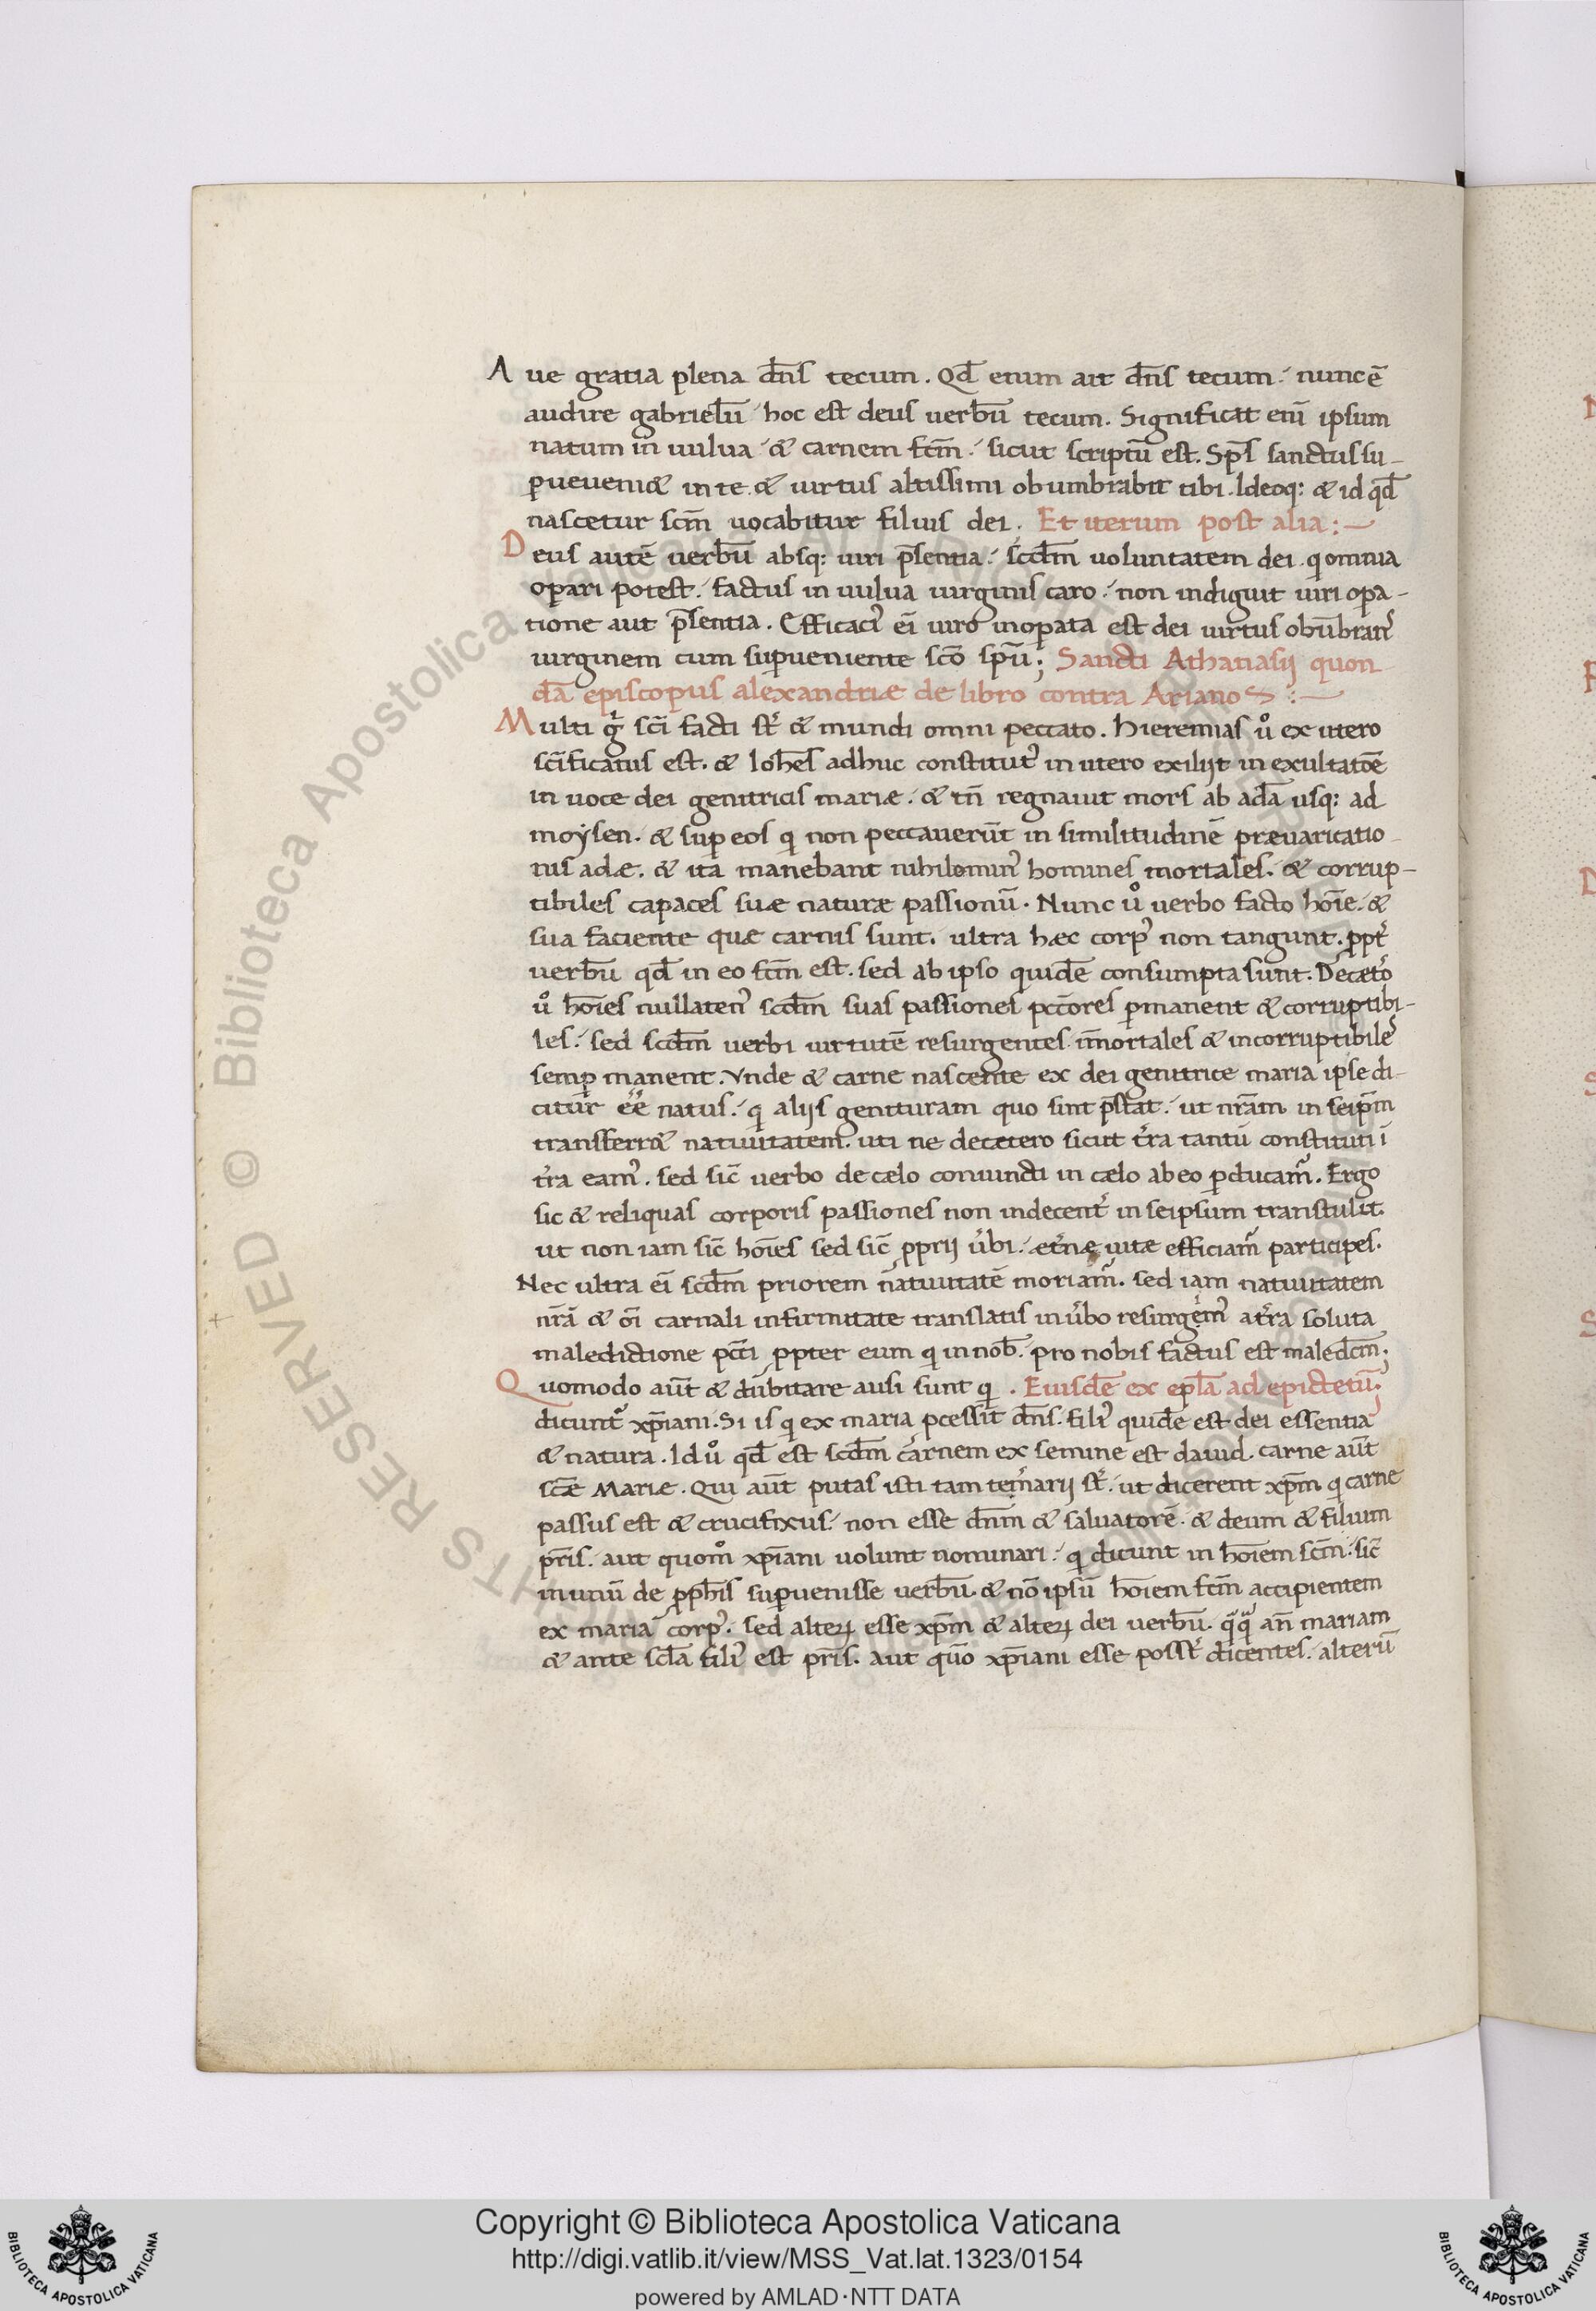 Aue gratia plena dn̄s tecum. Qd̄ enim ait dn̄s tecum. nunc ē
audire gabrielū hoc est deus uerbū tecum. Significat enī ipsum
natum in uulua & carnem fc̄m. sicut scriptū est. Sp̄s sanctus su-
ꝑueueni& in te & uirtus altissimi obumbrabit tibi. Ideoq: & id qd̄
nascetur sc̄m uocabitur filius dei. Et iterum post alia:—
Deus autē uerbū absq: uiri p̄sentia. scd̄m uoluntatem dei. qi omnia
oꝑari potest. factus in uulua uirginis caro. non indiguit uiri oꝑa-
tione aut p̄sentia. Efficaciꝰ ei̅ uiro inoꝑata est dei uirtus obūbranˢ
uirginem cum suꝑueniente sc̄o sp̄u; Sancti Athanasij quon
dā episcopus alexandriæ de libro contra Arianos :—
Multi g̊ sc̄i facti st̄ & mundi omni peccato. Hieremias ů ex utero
sc̄ificatus est. & Ioh̄es adhuc constitutꝰ in utero exilijt in exultatōe
in uoce dei genitricis mariæ. & tn̄ regnauit mors ab adā usq: ad
moysen. & suꝑ eos qi non peccauerūt in similitudinē præuaricatio-
nis adæ. & ita manebant nihilominꝰ homines mortales. & corrup-
tibiles capaces suæ naturæ passionū. Nunc ů uerbo facto hōie. &
sua faciente quæ carnis sunt. ultra hæc corpꝰ non tangunt. ꝓpt̉
uerbū qd̄ in eo fc̄m est. sed ab ipso quidē consumpta sunt. De cæt̉o
ů hōies nullatenꝰ scd̄m suas passiones pcc̄ores ꝑmanent & corruptibi-
les. sed scd̄m uerbi uirtutē resurgentes. īmortales & incorruptibileˢ
semꝑ manent. Vnde & carne nascente ex dei genitrice maria ipse di-
citur ee̅ natus. qi alijs genituram quo sint p̄stat. ut nr̄am in seip̄m
transferr& natiuitatem. uti ne decætero sicut t̉ra tantū constituti ī
t̉ra eamꝰ. sed sic̄ uerbo de cælo coniuncti in cælo ab eo ꝑducam̉. Ergo
sic & reliquas corporis passiones non indecent̉ in seipsum transtulit.
ut non iam sic̄ hōies sed sic̄ ꝓprij u̓bi. æt̉næ uitæ efficiam̉ participes.
Nec ultra ei̅ scd̄m priorem natiuitatē moriam̉. sed iam natiuitatem
nr̄ā & oī carnali infirmitate translatis in u̓bo resurgem̉ꝰ a t̉ra soluta
maledictione pcc̄i ꝓpter eum qi in nob̄. pro nobis factus est maledc̄m;
Quomodo aūt & dubitare ausi sunt qi. Eiusdē ex epl̄a ad epictetū;
dicunt̉ xp̄iani. Si is qi ex maria ꝓcessit dn̄s. filiꝰ quidē est dei essentia
& natura. Id ů qd̄ est scd̄m carnem ex semine est dauid. carne aūt
sc̄æ Mariæ. Qui aūt putas isti tam tem̉arij st̄. ut dicerent xp̄m qi carne
passus est & crucifixus. non esse dn̄m & saluatorē. & deum & filium
pr̄is. aut quom̊ xp̄iani uolunt nominari. qi dicunt in hōiem sc̄m. sic̄
in unū de ꝓph̄is suꝑuenisse uerbū. & nō ipsū hōiem fc̄m accipientem
ex maria corpꝰ. sed alteꝝ esse xp̄m & alteꝝ dei uerbū. qi an̄ mariam
& ante scl̄a filiꝰ est pr̄is. aut quō xp̄iani esse posst̄ dicentes. alterū
Biblioteca Apostolica Vaticana
Copyright © Biblioteca Apostolica Vaticana
http://digi.vatlib.it/view/MSS_Vat.lat.1323/0154
powered by AMLAD·NTT DATA